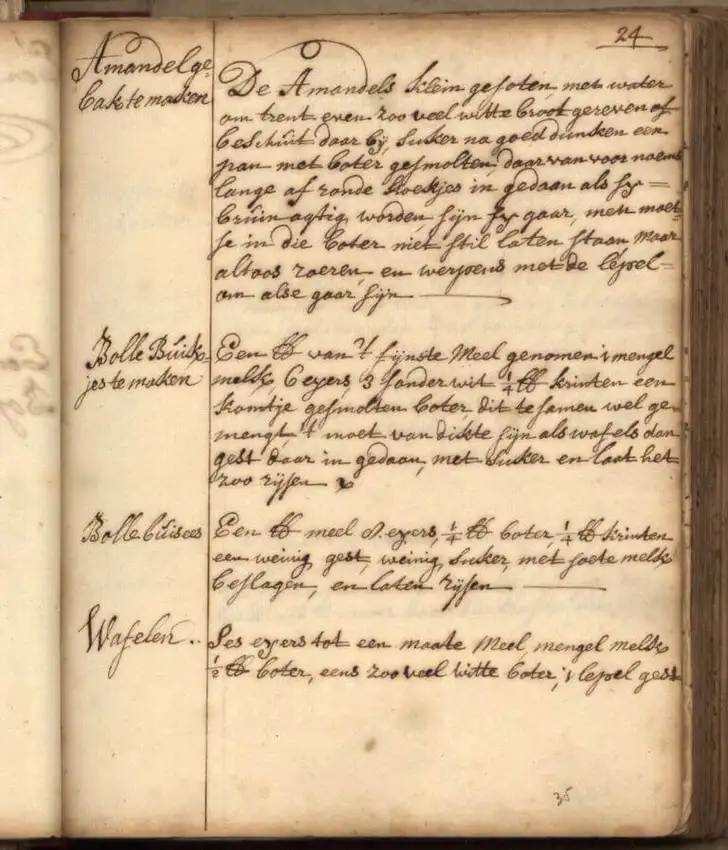 24
Amandelge-
bak te maken
De Amandels klein gesoten met water
om trent even zoo veel witte broot gereven of
beschuit daar bij, suker na goed dunken een
pan met boter gesmolten, daar van voor noemt
lange af ronde stoekjes in gedaan als sy =
bruin agtig worden sijn sy gaar, men moet
se in die boter niet stil laten staan, maar
altoos roeren en werpens met de lepel =
om alse gaar sijn
Bolle Buisk-
jes te maken
Een ℔ van 't fijnste Meel genomen 1 mengel
melk 6 eyers, 3 sonder wit ¼ ℔ krinten een
komtje gesmolten boter, dit te samen wel ge-
mengt, 't moet van dikte sijn als wafels dan
gest daar in gedaan, met suker en laat het
zoo rijsen
Bolle buisees
Een ℔ meel 8 eyers, ¼ ℔ boter ¼ ℔ krinten
een weinig gest, weinig suker, met soete melk
beslagen, en laten rijsen
Wafelen ..
Ses eyers tot een maate Meel, mengel melk
½ ℔ boter, eens zoo veel witte boter, 1 lepel gest
35